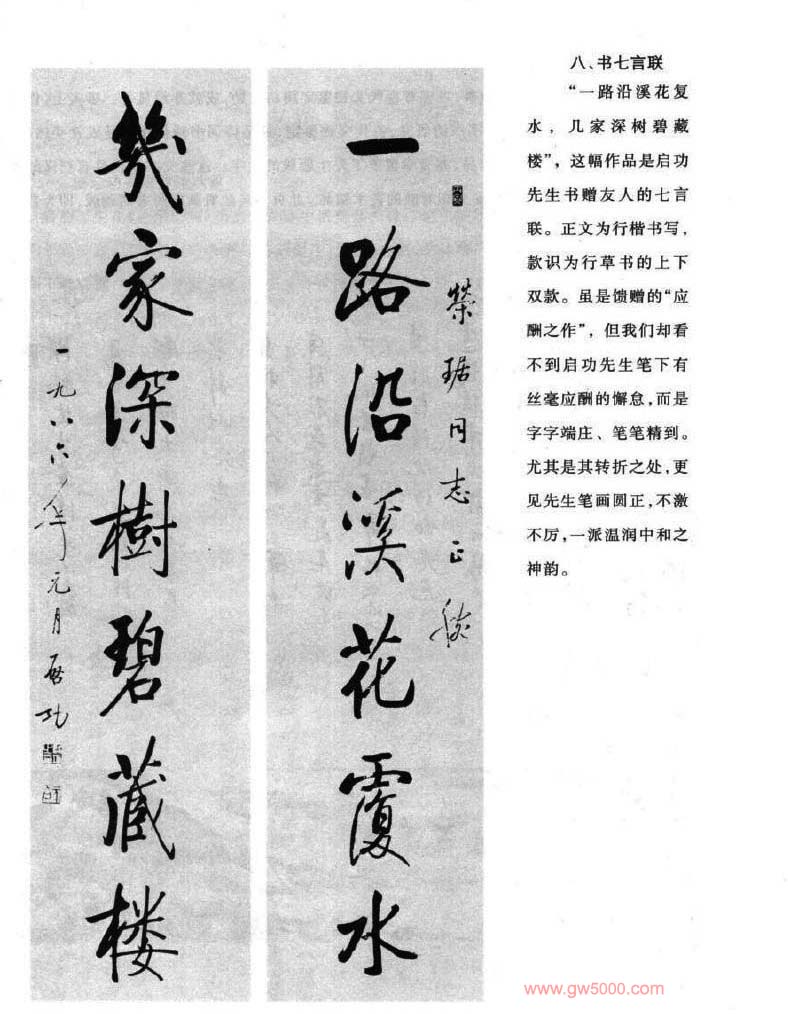 八、书七言联
“一路沿溪花复
水，几家深树碧藏
楼”，这幅作品是启功
先生书赠友人的七言
联。正文为行楷书写，
款识为行草书的上下
双款。虽是馈赠的“应
酬之作”，但我们却看
不到启功先生笔下有
丝毫应酬的懈怠，而是
字字端庄、笔笔精到。
尤其是其转折之处，更
见先生笔画圆正，不激
不厉，一派温润中和之
神韵。
荣琚同志正
一路沿溪花覆水
幾家深樹碧藏楼
一九八六年元月启功
www.gw5000.com